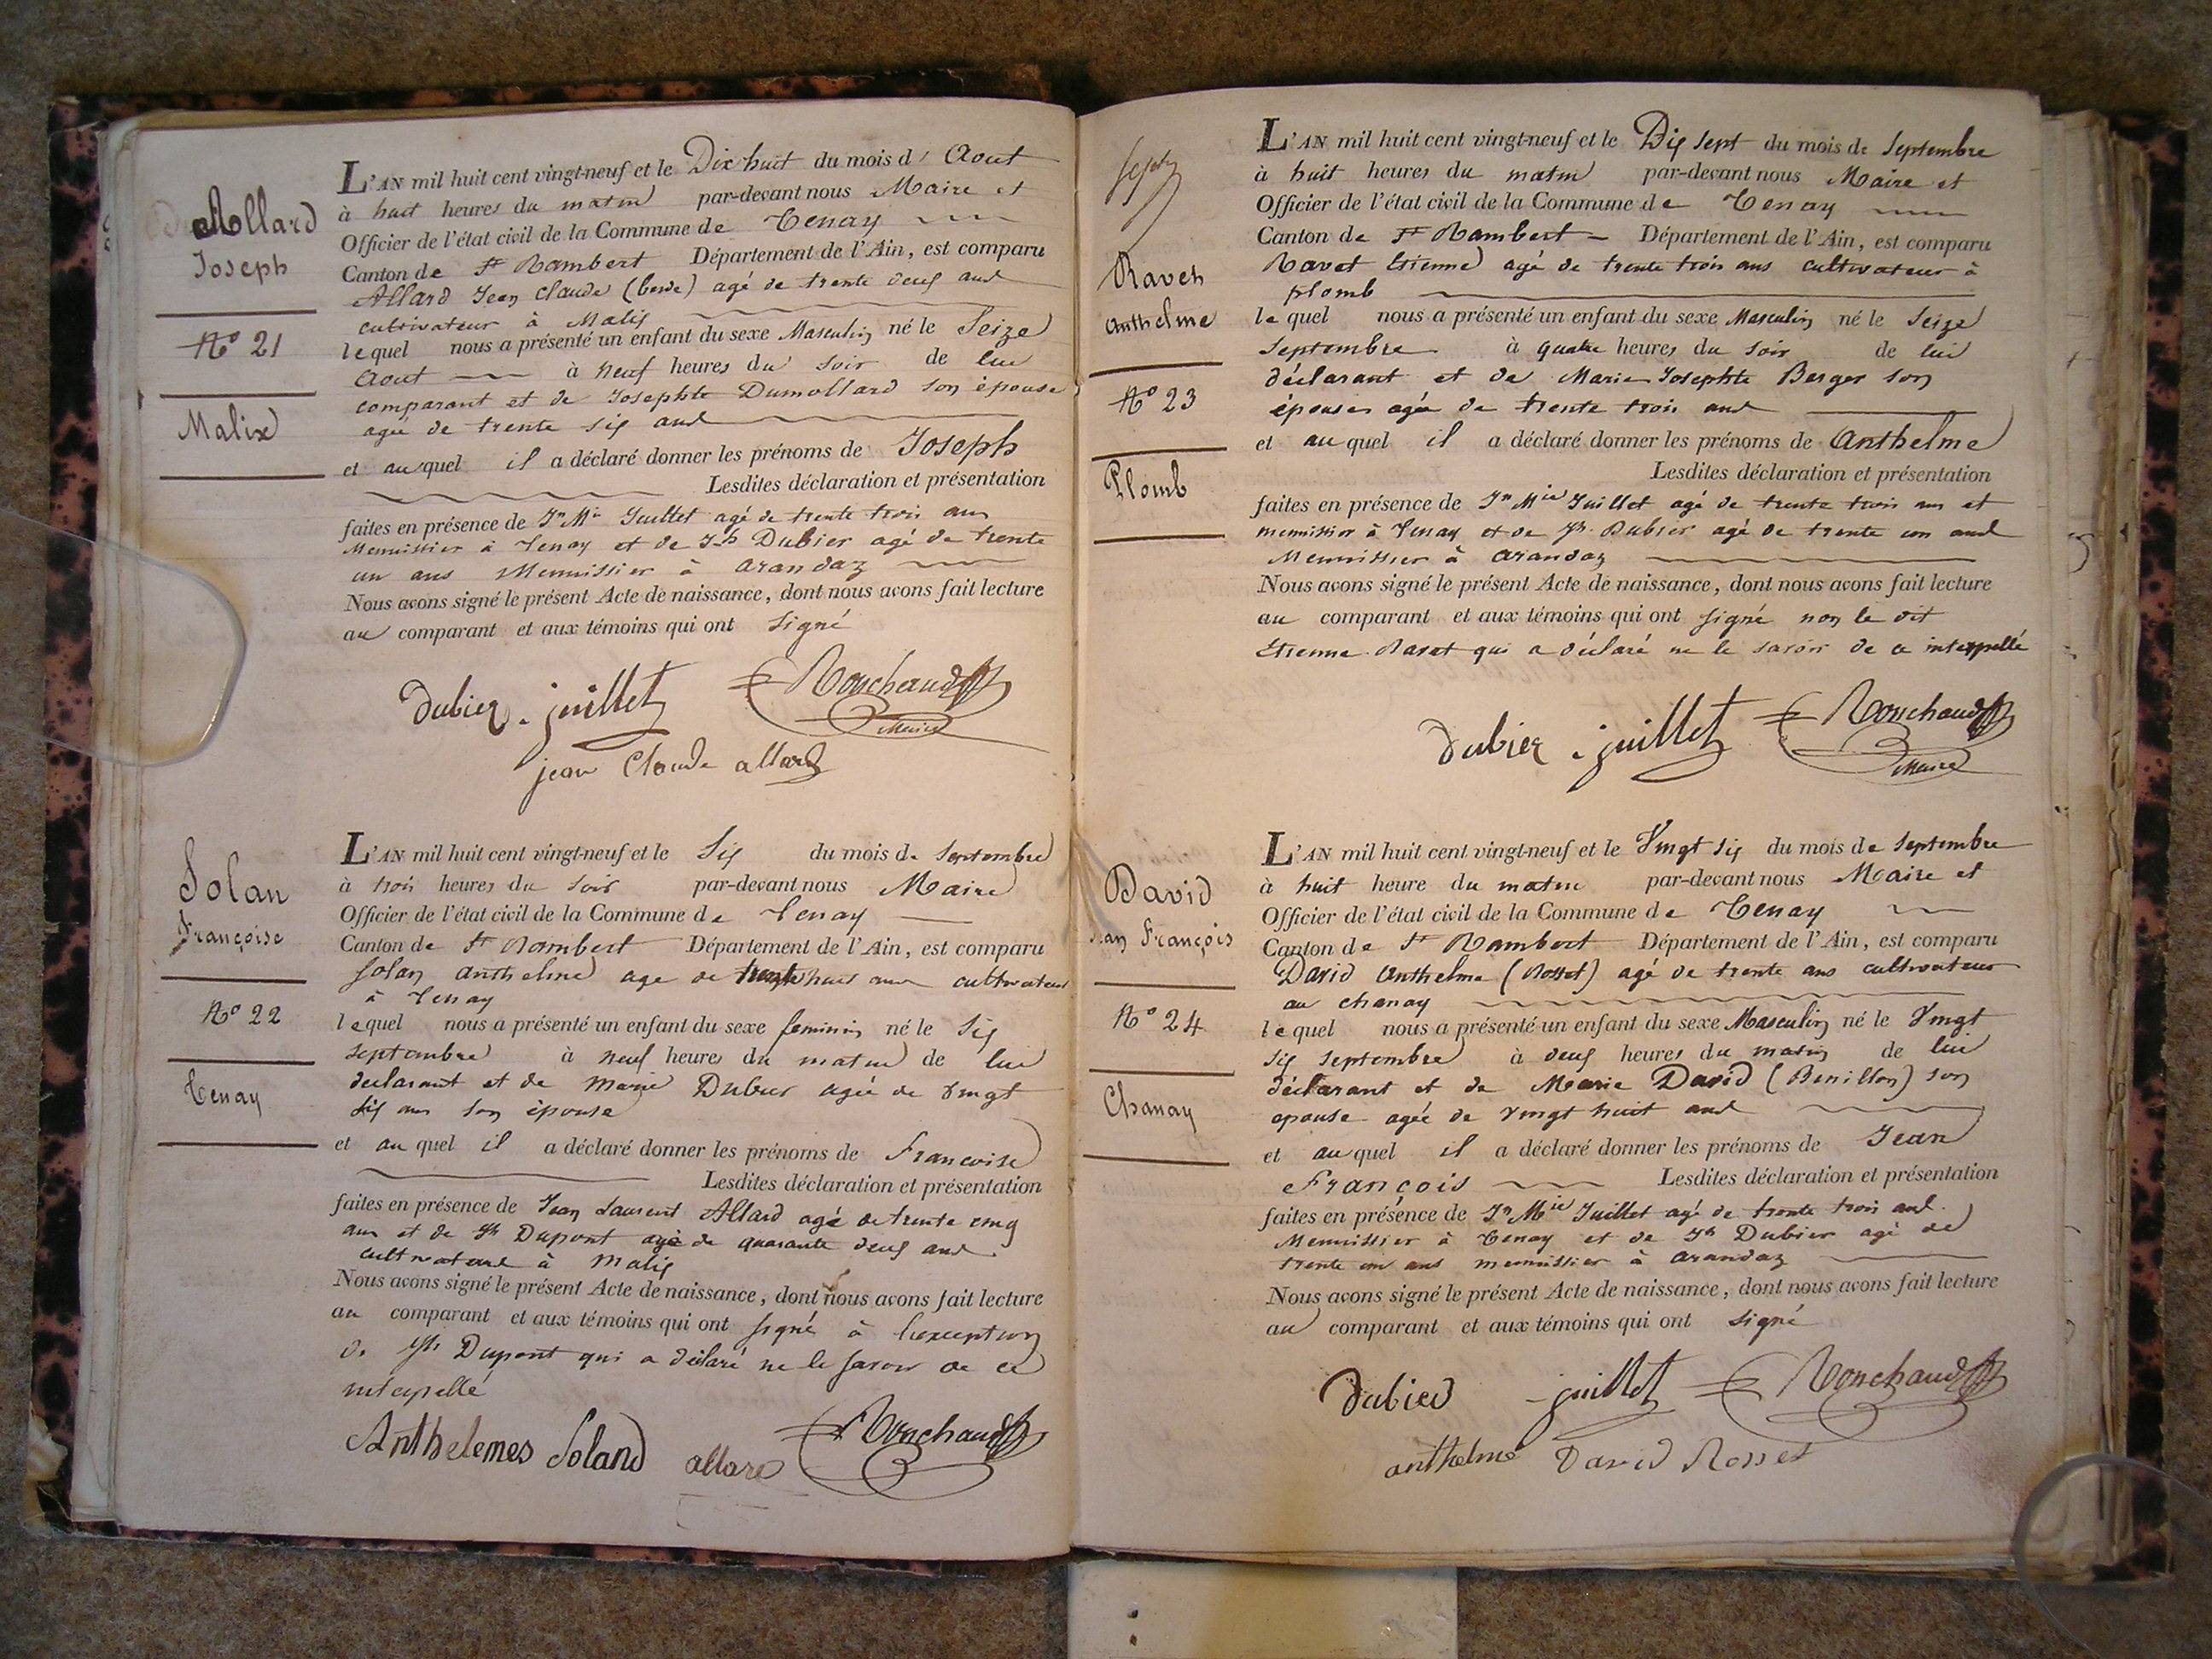 Allard
Joseph
N° 21
Malix
L'AN mil huit cent vingt-neuf et le Dix huit du mois d'Aout
à huit heures du matin par-devant nous Maire et
Officier de l'état civil de la Commune de Tenay
Canton de St Rambert Département de l'Ain, est comparu
Allard Jean Claude agé de trente deux ans
cultivateur à Malix
lequel nous a présenté un enfant du sexe Masculin né le Seize
Aout à neuf heures du soir de lui
comparant et de Josephte Dumollard son épouse
agée de trente six ans
et auquel il a déclaré donner les prénoms de Joseph
Lesdites déclaration et présentation
faites en présence de Jn Mie Juillet agé de trente trois ans
Menuissier à Tenay et de Jh Dubier agé de trente
un ans Menuissier à arandaz
Nous avons signé le présent Acte de naissance, dont nous avons fait lecture
au comparant et aux témoins qui ont signé
Dubier juillet Ronchaud
Maire
jean Claude allard
Solan
Françoise
N° 22
Tenay
L'AN mil huit cent vingt-neuf et le Six du mois de Septembre
à trois heures du soir par-devant nous Maire
Officier de l'état civil de la Commune de Tenay
Canton de St Rambert Département de l'Ain, est comparu
Solan anthelme age de huit ans cultivateur
à Tenay
lequel nous a présenté un enfant du sexe feminin né le Six
septembre à neuf heures du matin de lui
declarant et de Marie Dubier agée de vingt
six ans son épouse
et auquel il a déclaré donner les prénoms de Francoise
Lesdites déclaration et présentation
faites en présence de Jean Laurent Allard agé de trente cinq
ans et de Jh Dupont agé de quarante deux ans
cultivateurs à Malix
Nous avons signé le présent Acte de naissance, dont nous avons fait lecture
au comparant et aux témoins qui ont signé à l'exception
de Jh Dupont qui a déclaré ne le savoir de ce
interpellé
Anthelemes Soland allard Ronchaud
Septbre
Ravet
Anthelme
N° 23
Plomb
L'AN mil huit cent vingt-neuf et le Dix sept du mois de Septembre
à huit heures du matin par-devant nous Maire et
Officier de l'état civil de la Commune de Tenay
Canton de St Rambert Département de l'Ain, est comparu
Ravet Etienne agé de trente trois ans cultivateur à
plomb
lequel nous a présenté un enfant du sexe Masculin né le Seize
Septembre à quatre heures du soir de lui
déclarant et de Marie Josephte Berger son
épouse agée de trente trois ans
et auquel il a déclaré donner les prénoms de Anthelme
Lesdites déclaration et présentation
faites en présence de Jn Mie Juillet agé de trente trois ans et
menuissier à Tenay et de Jh Dubier agé de trente un ans
Menuissier à arandaz
Nous avons signé le présent Acte de naissance, dont nous avons fait lecture
au comparant et aux témoins qui ont signé non le dit
Etienne Ravet qui a déclaré ne le savoir de ce interpellé
Dubier juillet Ronchaud
Maire
David
Jean François
N° 24
Chanay
L'AN mil huit cent vingt-neuf et le Vingt six du mois de Septembre
à huit heure du matin par-devant nous Maire et
Officier de l'état civil de la Commune de Tenay
Canton de St Rambert Département de l'Ain, est comparu
David Anthelme (Rosset) agé de trente ans cultivateur
au chanay
lequel nous a présenté un enfant du sexe Masculin né le Vingt
six septembre à deux heures du matin de lui
déclarant et de Marie David (Benillon) son
epouse agée de vingt huit ans
et auquel il a déclaré donner les prénoms de Jean
François Lesdites déclaration et présentation
faites en présence de Jn Mie Juillet agé de trente trois ans
Menuissier à Tenay et de Jh Dubier agé de
trente un ans menuissier à arandaz
Nous avons signé le présent Acte de naissance, dont nous avons fait lecture
au comparant et aux témoins qui ont signé
Dubied juillet Ronchaud
anthelme David Rosset